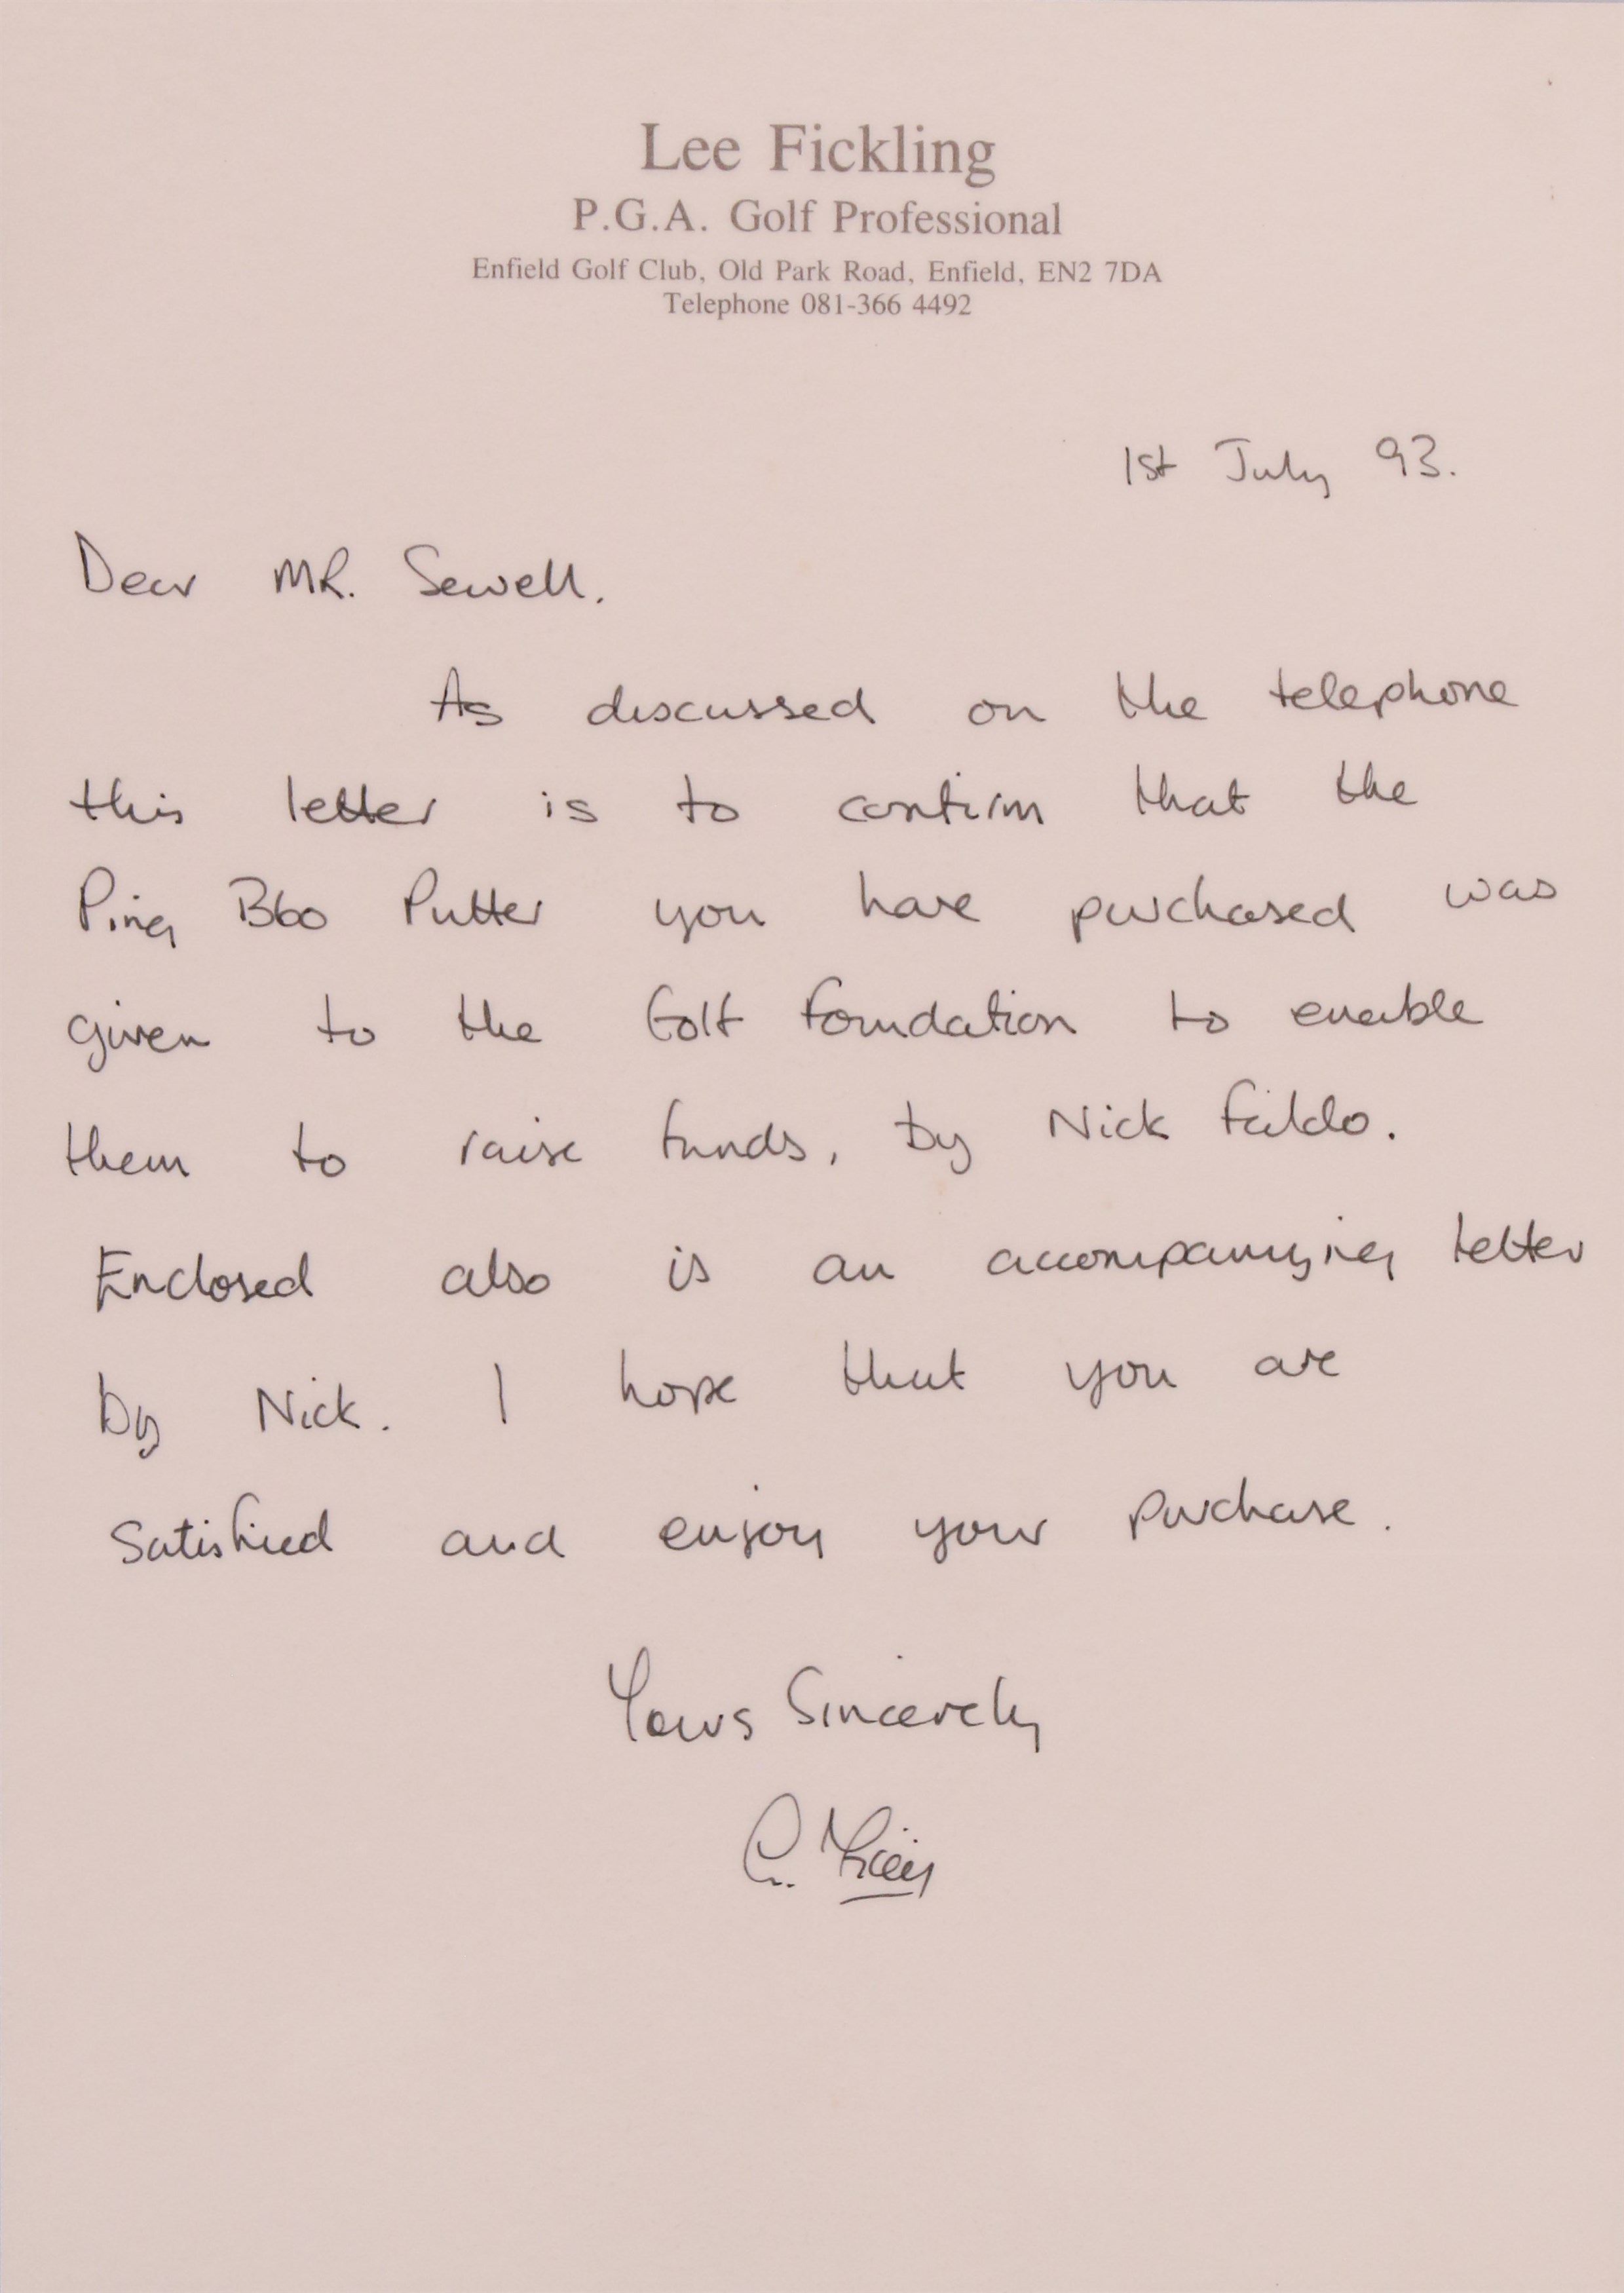 Lee Fickling
P.G.A. Golf Professional
Enfield Golf Club, Old Park Road, Enfield, EN2 7DA
Telephone 081-366 4492
1st July 93.
Dear MR. Sewell.
As discussed on the telephone
this letter is to confirm that the
Ping B60 Putter you have purchased was
given to the Golf Foundation to enable
them to raise funds, by Nick Faldo.
Enclosed also is an accompanying letter
by Nick. I hope that you are
Satisfied and enjoy your purchase.
Yours Sincerely